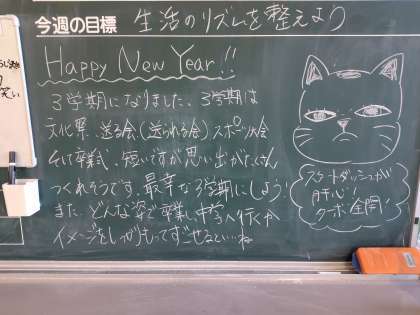 今週の目標 生活のリズムを整えよう
Happy New Year!!
3学期になりました。3学期は
文化祭、送る会(送られる会)スポーツ大会
そして卒業式、短いですが思い出がたくさん
つくれそうです。最幸な3学期にしよう!
また、どんな姿で卒業し、中学へ行くか
イメージをしっかりもってすごせるといいね
スタートダッシュが
肝心!
ターボ全開!
笑い